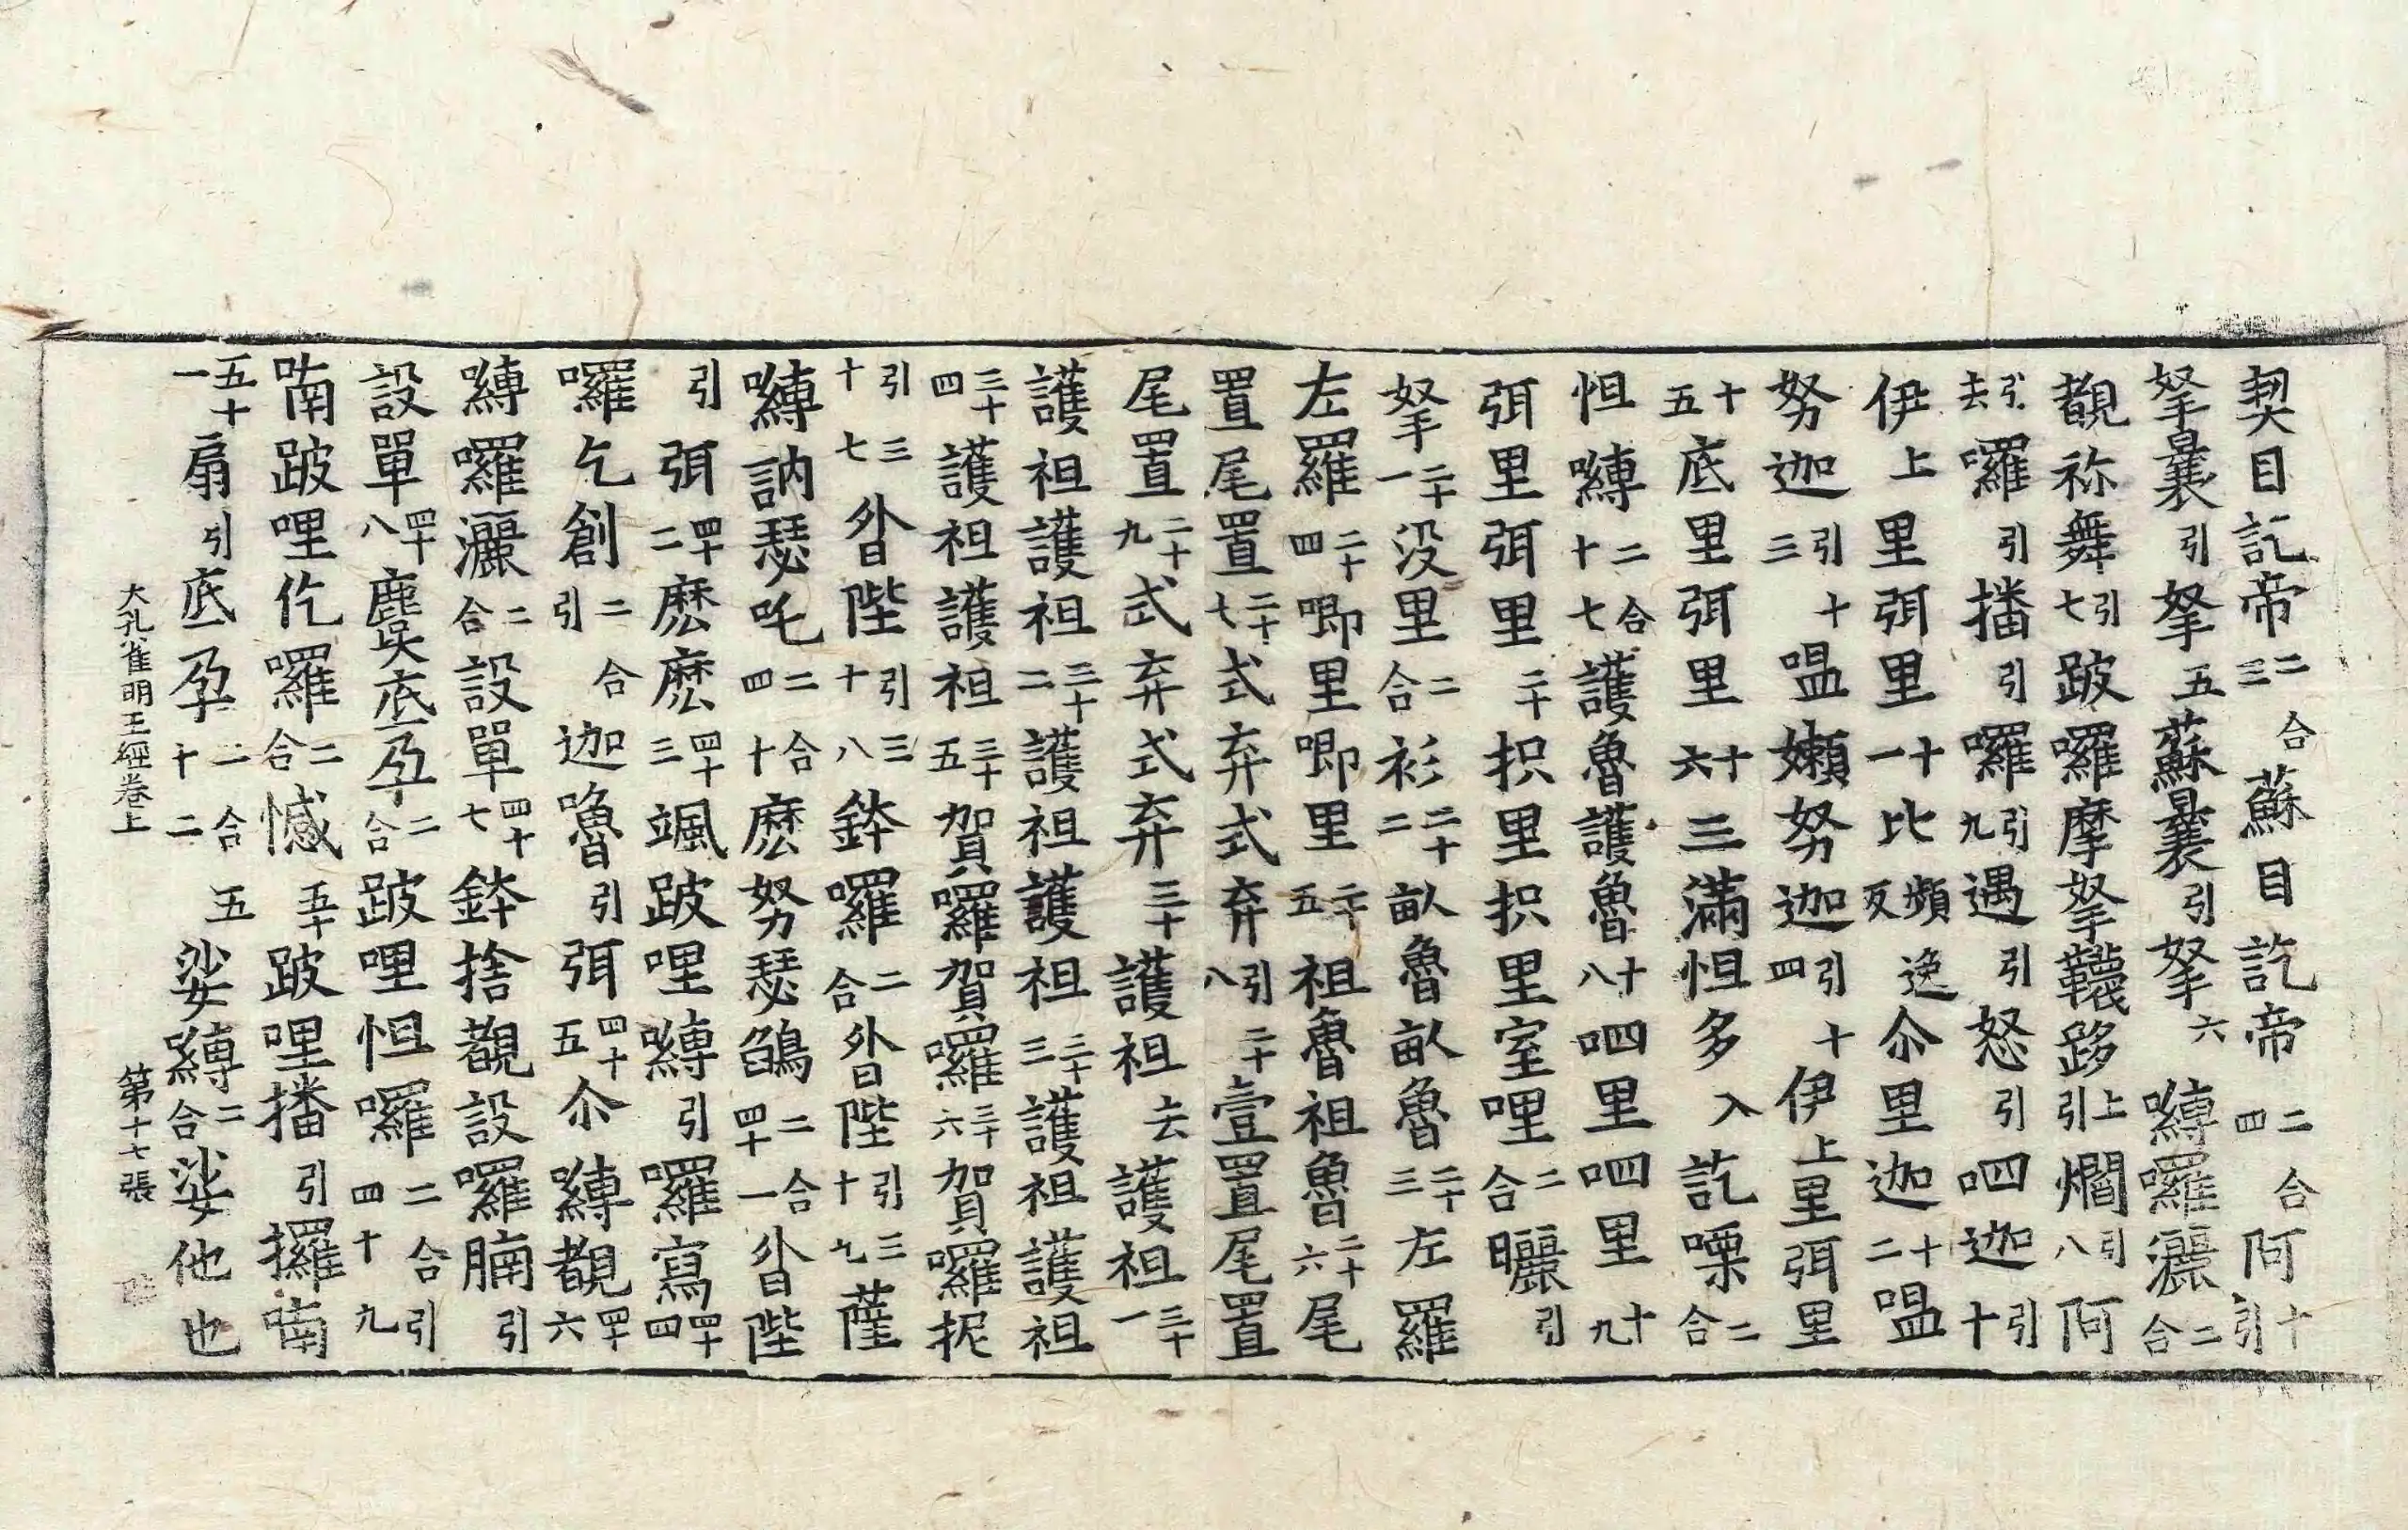 契目訖帝二合三蘇目訖帝二合四阿引十
拏曩引拏五蘇曩引拏六嚩囉灑二合
覩祢舞引七跛囉摩拏韈跢上引爛引八阿
引去囉引播引囉引九遇引怒引呬迦引十
伊上里弭里十一比頻逸反尒里迦十二嗢
努迦引十三嗢嬾努迦引十四伊上里弭里
十五底里弭里十六三滿怛多入訖㗚二合
怛嚩二合十七護魯護魯十八呬里呬里十九
弭里弭里二十抧里抧里室哩二合曬引
拏二十一没里二合衫二十二畝魯畝魯二十三左羅
左羅二十四唧里唧里二十五祖魯祖魯二十六尾
置尾置二十七式弃式弃引二十八壹置尾置
尾置二十九式弃式弃三十護祖去護祖三十一
護祖護祖三十二護祖護祖三十三護祖護祖
三十四護祖護祖三十五賀囉賀囉三十六賀囉抳
引三十七喒陛引三十八鉢囉二合喒陛引三十九薩
嚩訥瑟吒二合四十麽努瑟鵮二合四十一喒陛
引弭四十二麽麽四十三颯跛哩嚩引囉寫四十四
囉乞創二合引迦嚕引弭四十五尒嚩覩四十六
嚩囉灑二合設單四十七鉢捨覩設囉腩引
設單四十八麌底孕二合跛哩怛囉二合引四十九
喃跛哩仡囉二合憾五十跛哩播引攞喃
五十一扇引底孕二合五十二娑嚩二合娑他也
大孔雀明王經卷上 第十七張